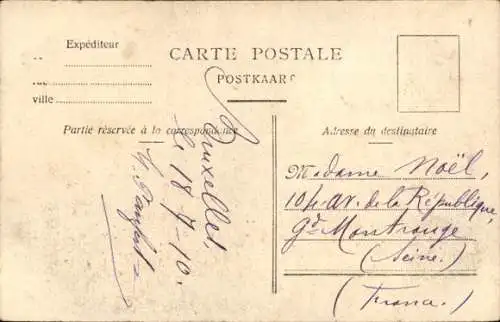 Expéditeur
rue
ville
CARTE POSTALE
POSTKAART
Partie réservée à la correspondance
Adresse du destinataire
Bruxelles,
le 18-7-10.
Madame Noël,
104 av. de la République,
Gd Montrouge
(Seine.)
(France.)